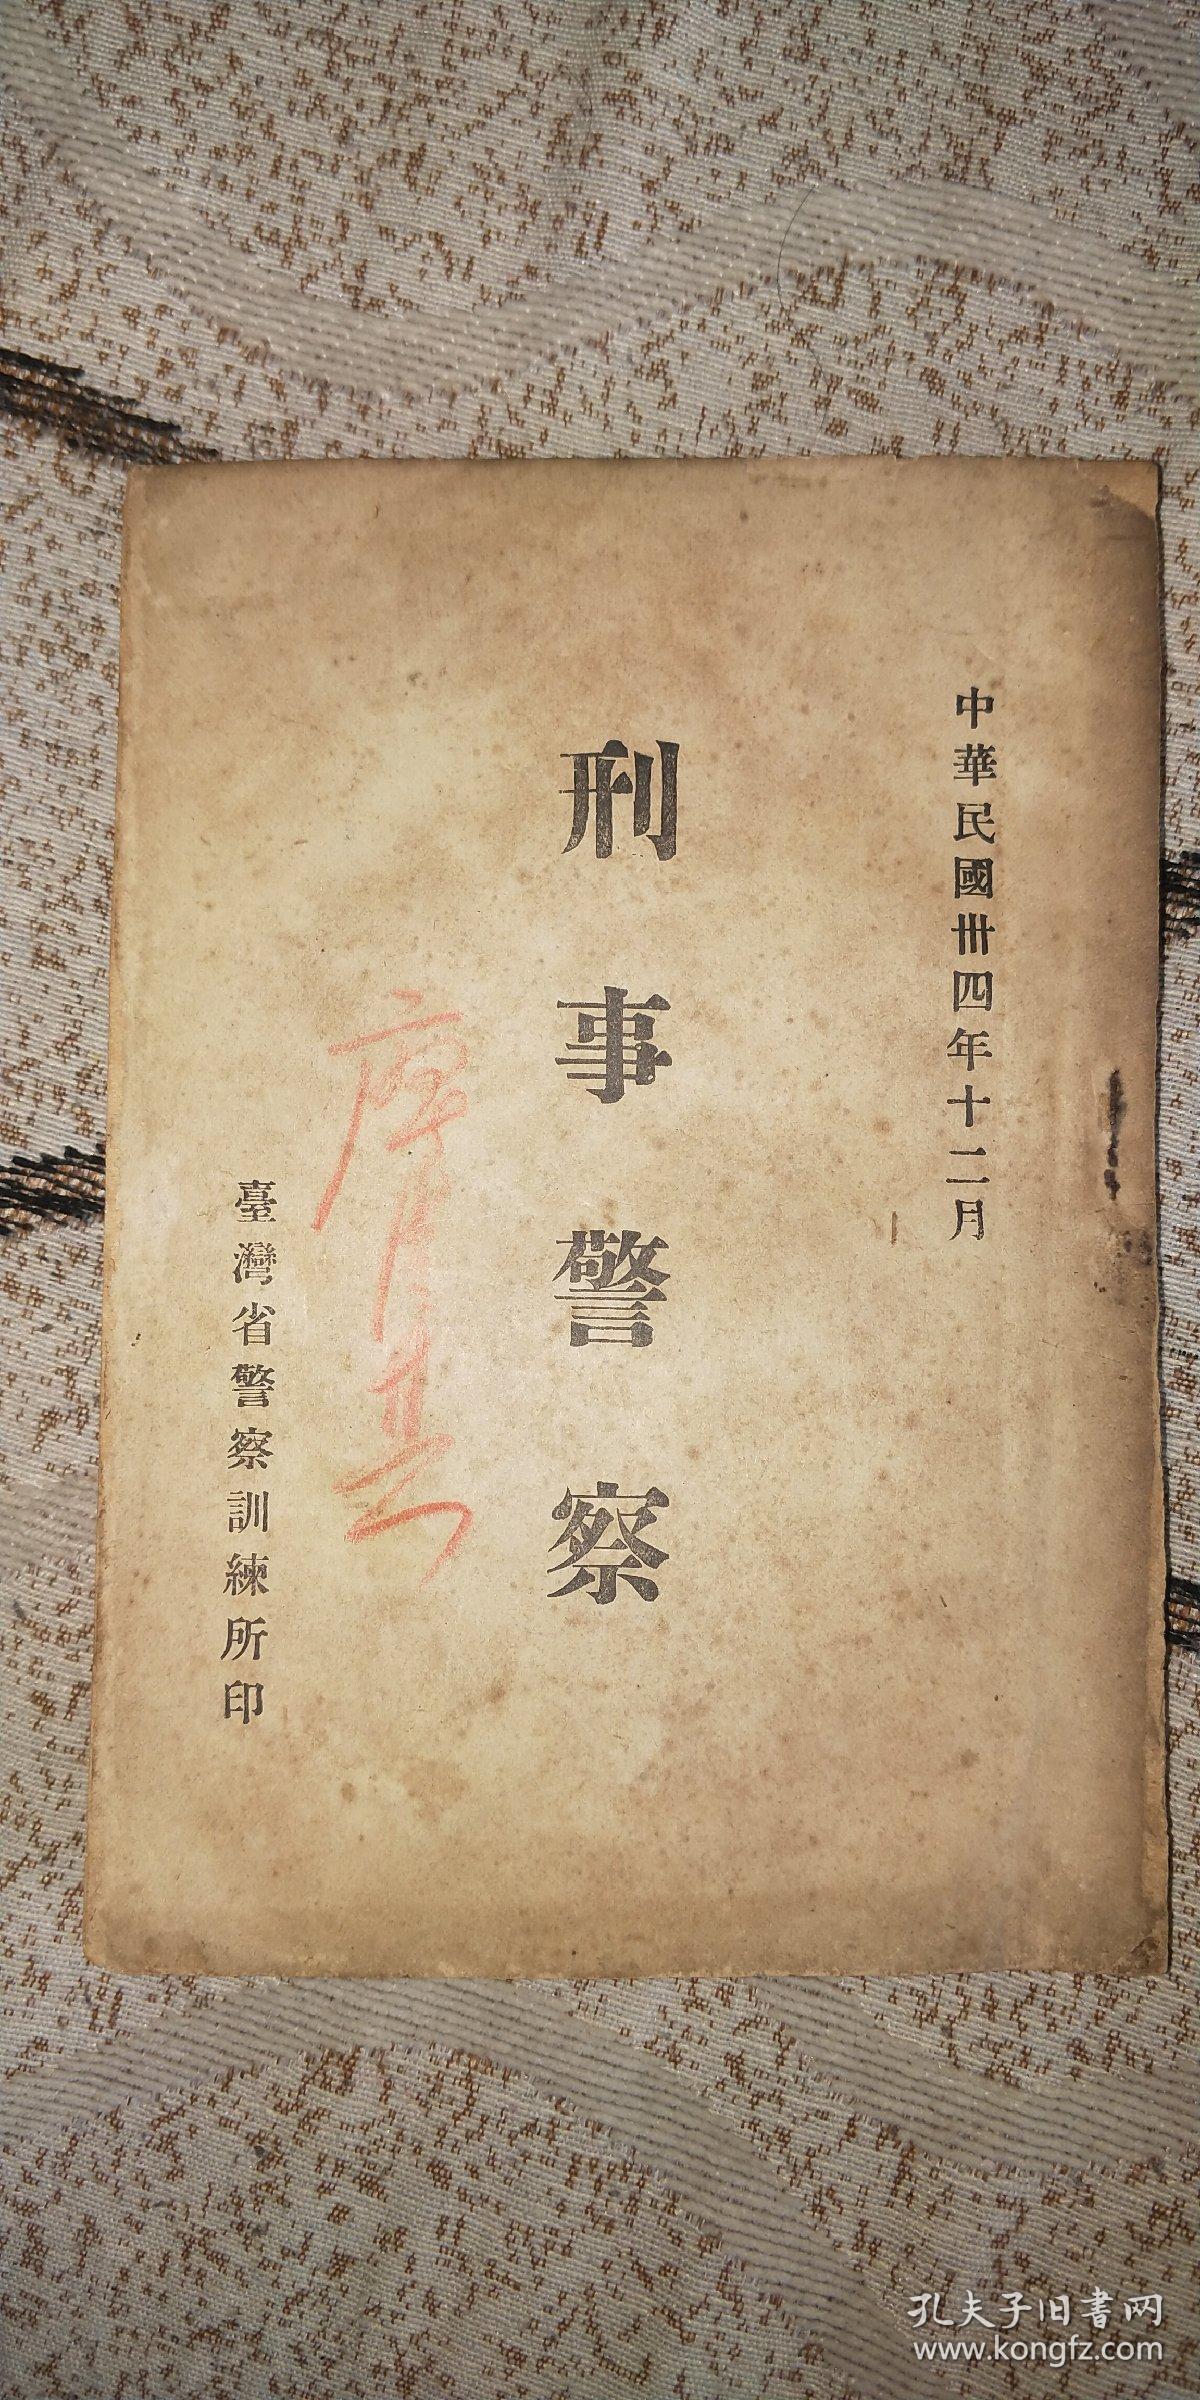 中華民國卅四年十二月
刑事警察
臺灣省警察訓練所印
孔夫子旧書网
www.kongfz.com